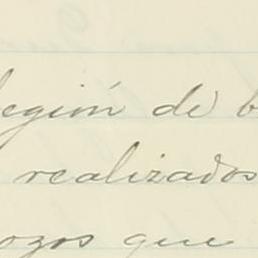 región de b
realizados
ozos que